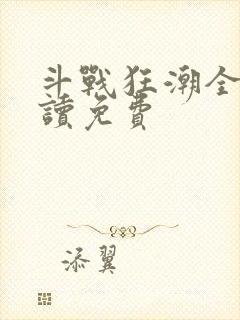 斗戰狂潮全
讀免費
添翼